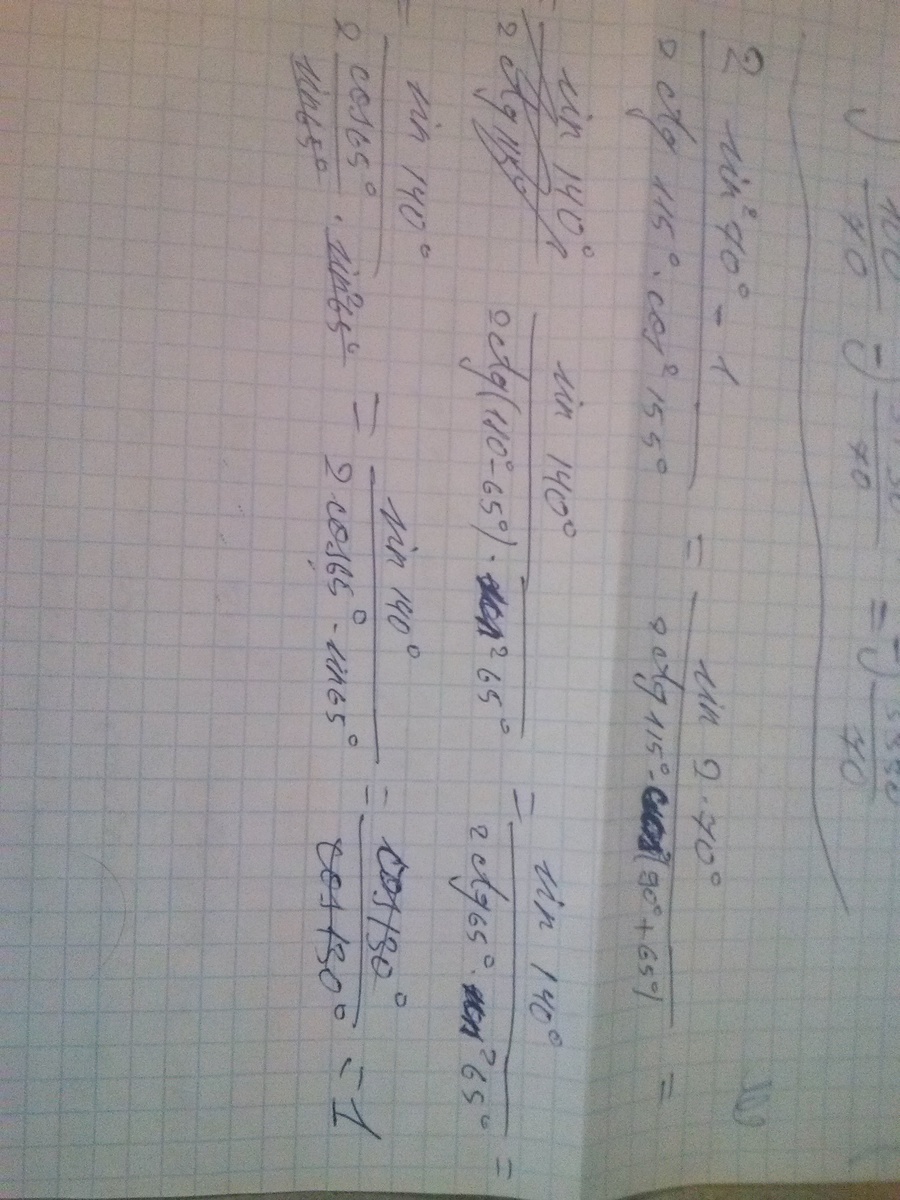 100/70 = 70 = 70
(2 sin²70° - 1)/(2 ctg 115° · cos²155°) = (sin 2·70°)/(2 ctg 115° · cos²(90° + 65°)) =
= sin 140°/2 ctg 115° sin 140°/(2 ctg(180° - 65°) · sin²65°) = sin 140°/(2 ctg 65° · sin²65°) =
= sin 140°/(2 cos 65°/sin 65° · sin²65°) = sin 140°/(2 · cos 65° · sin 65°) = cos 130°/cos 130° = 1